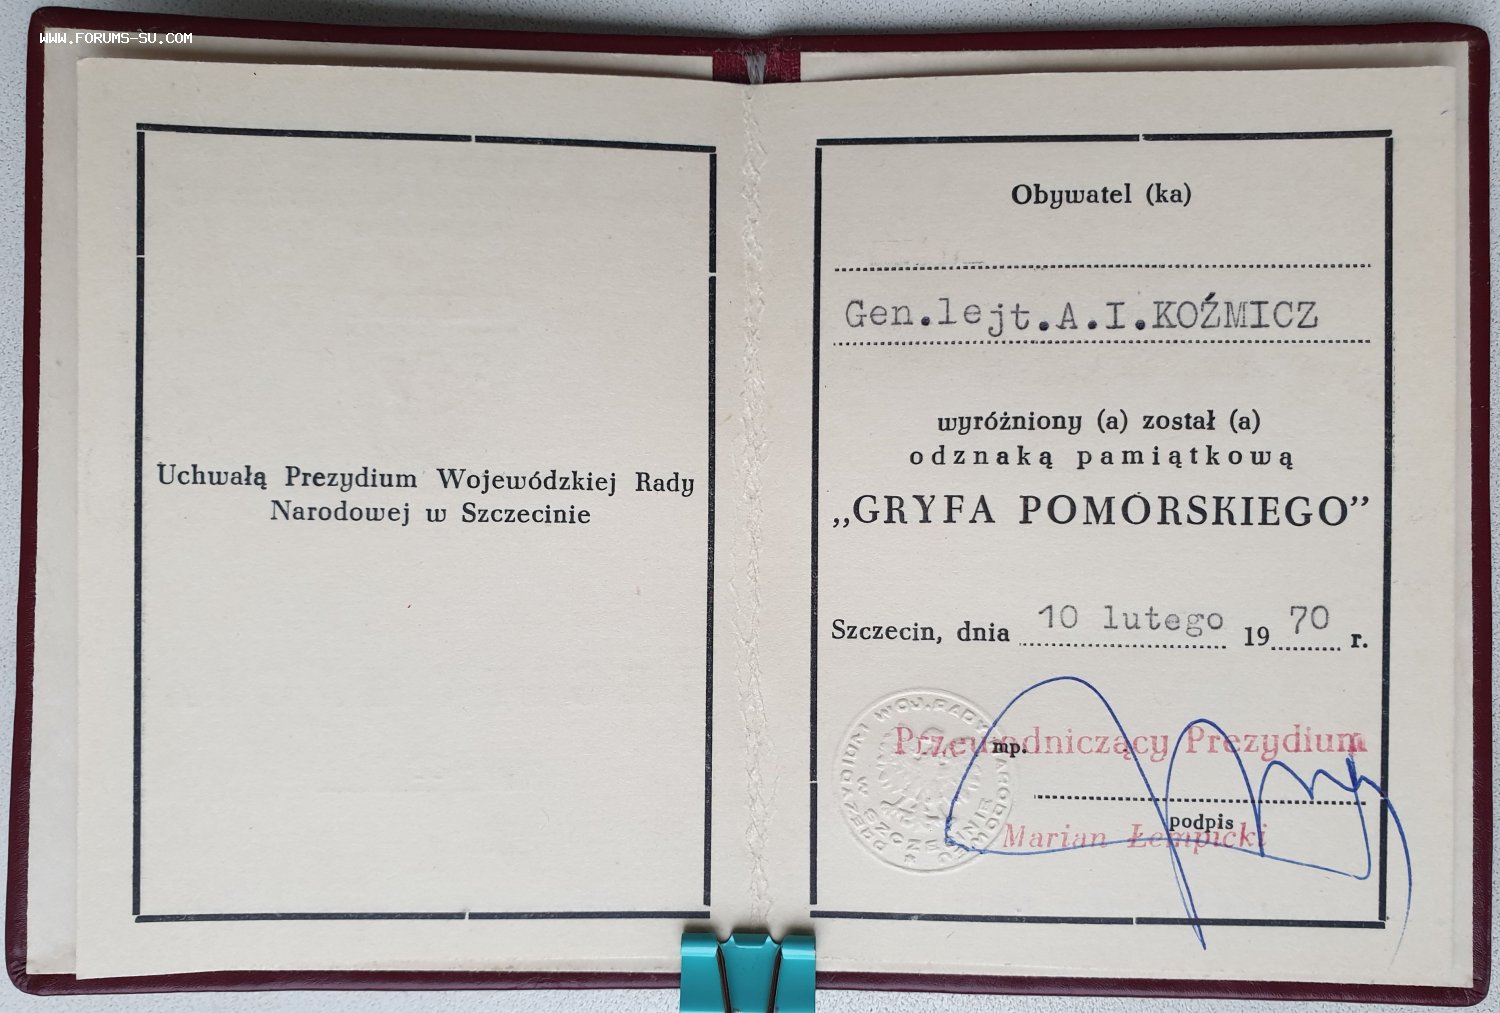 www.forums-su.com
Uchwałą Prezydium Wojewódzkiej Rady
Narodowej w Szczecinie
Obywatel (ka)
Gen.lejt.A.I.KOŹMICZ
wyróżniony (a) został (a)
odznaką pamiątkową
„GRYFA POMORSKIEGO”
Szczecin, dnia 10 lutego 1970 r.
PREZYDIUM WOJ. RADY NARODOWEJ
W SZCZECINIE
Przewodniczący Prezydium
mp.
podpis
Marian Łempicki